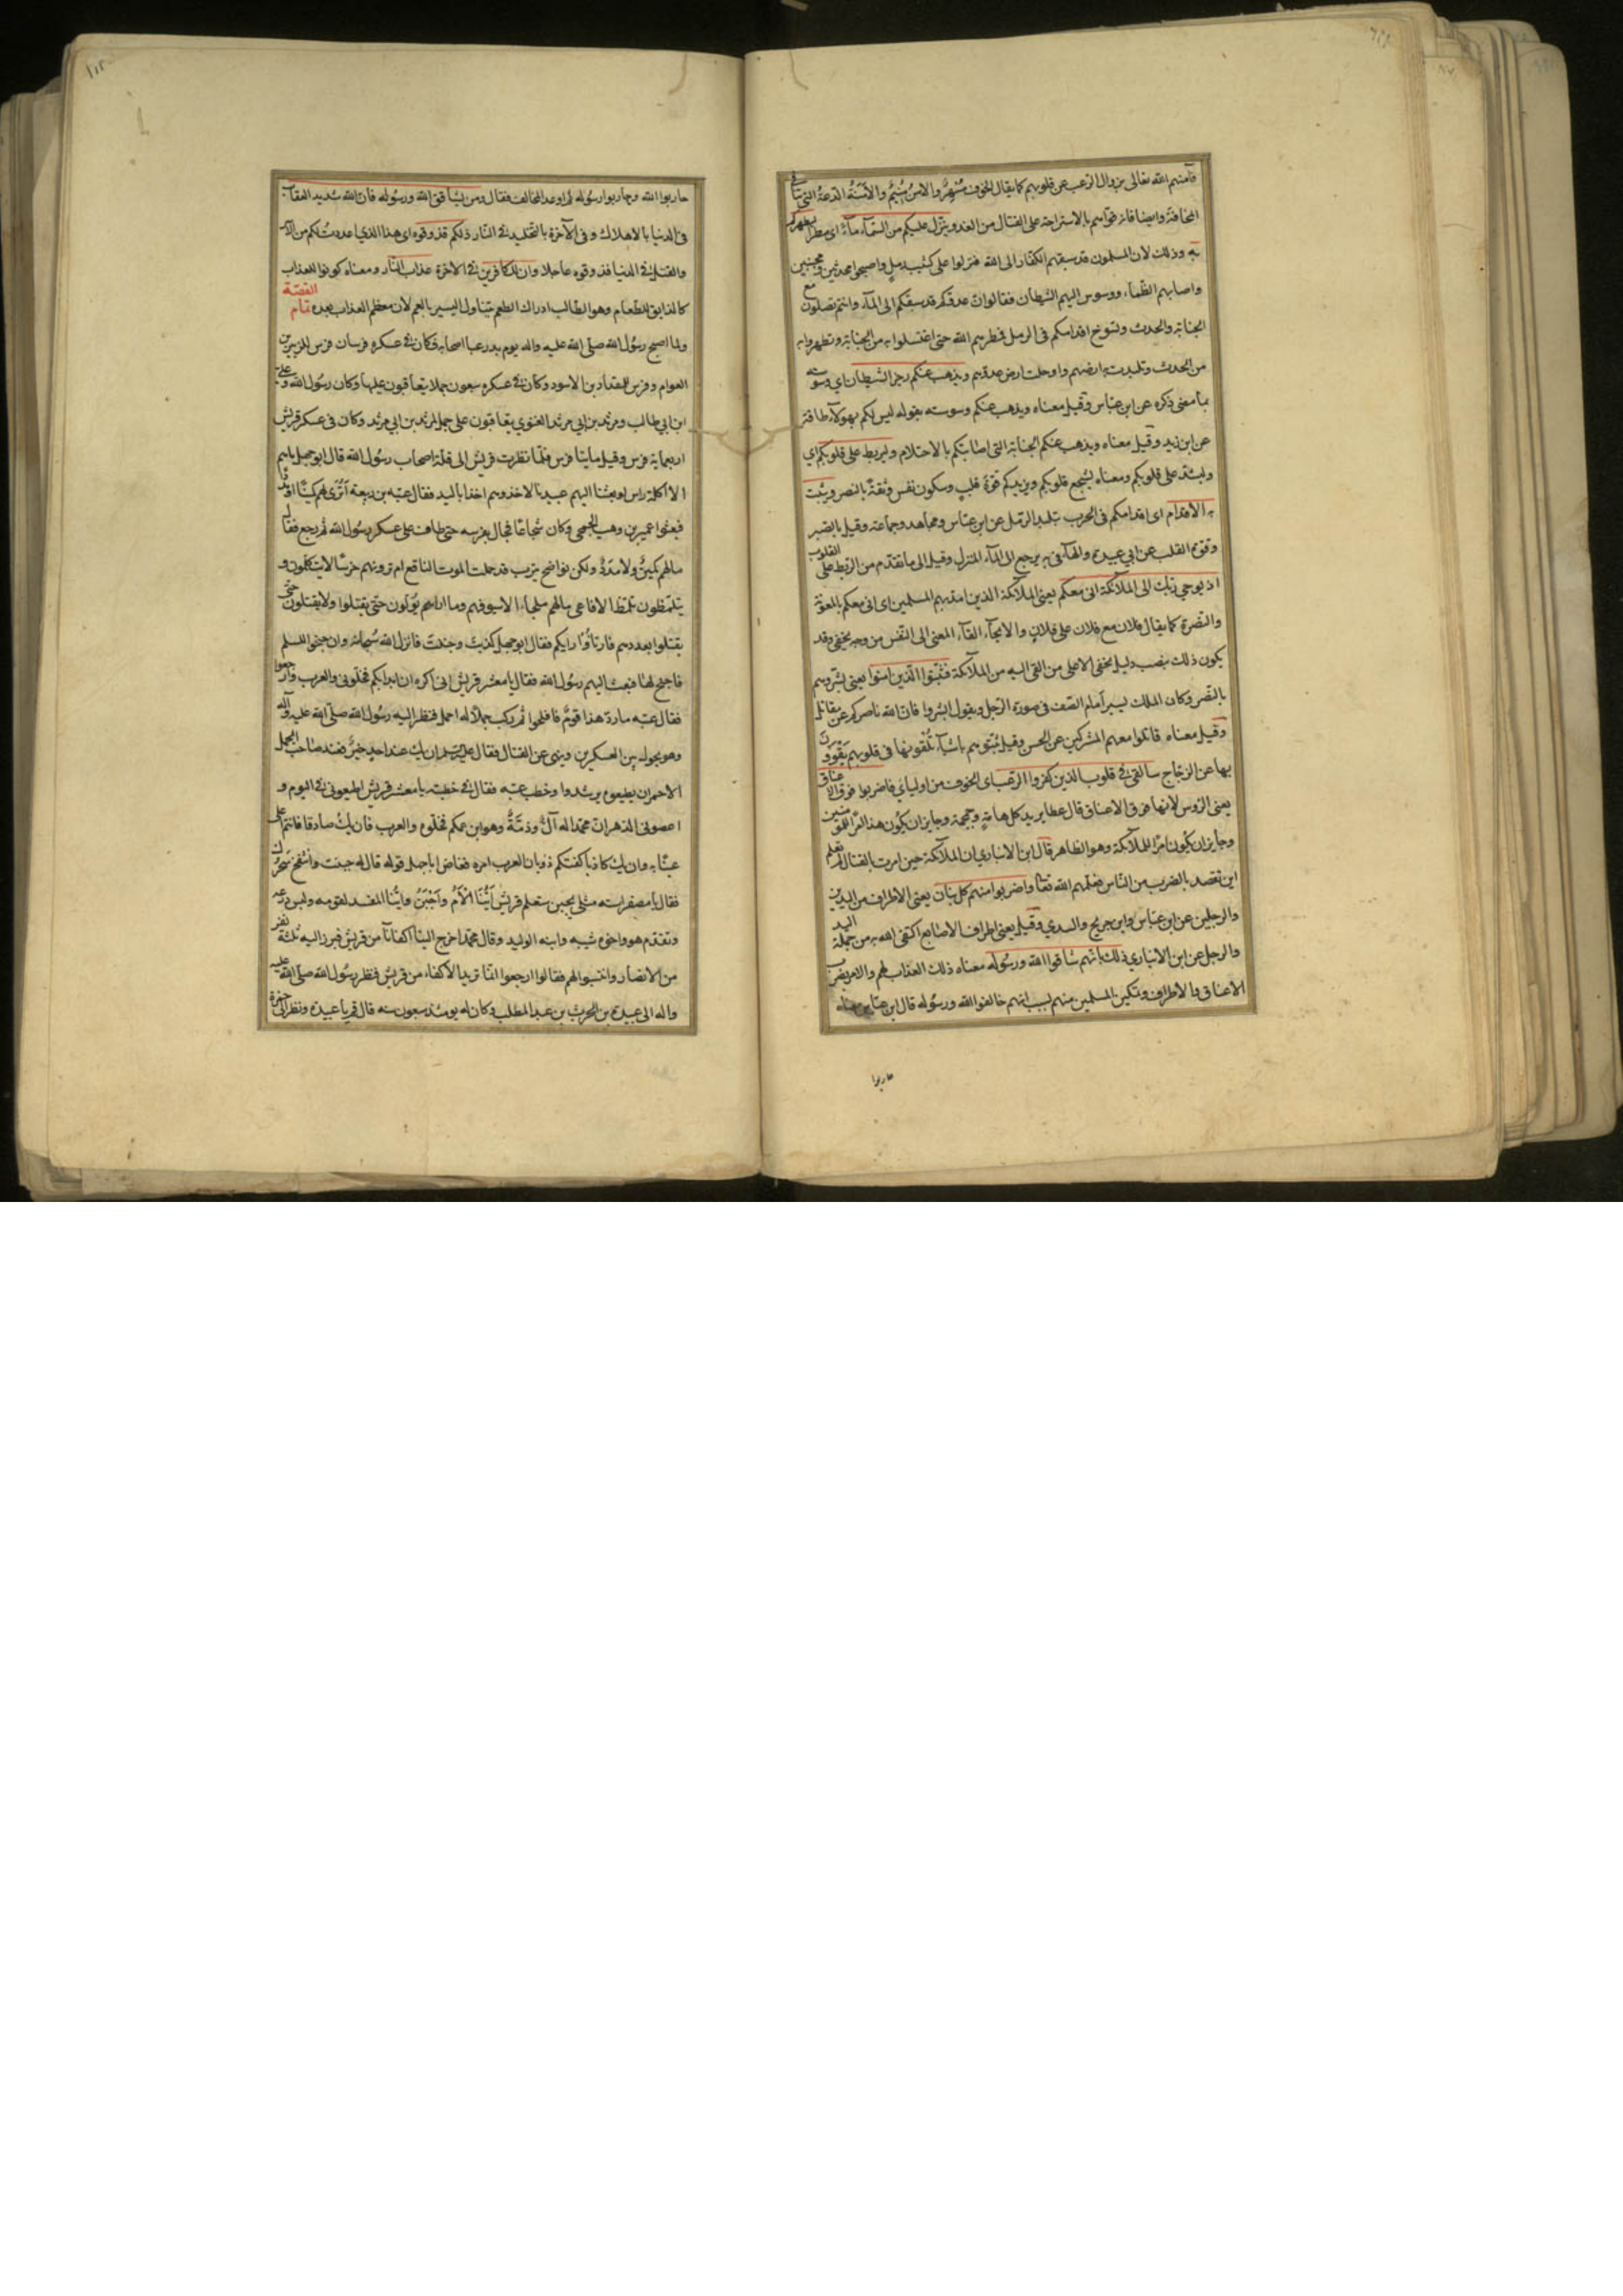 فآمنهم الله تعالى بزوال الرعب عن قلوبهم كما يقال الخوف مُسْهِرٌ والامن مُنيمٌ والأمنة الدعة التي تنافي
المخافة وايضا فانه قواهم بالاستراحة على القتال من الغد وينزل عليكم من السماء ماء اى مطرا ليطهركم
به وذلك لان المسلمون قد سبقهم الكفار الى الماء فنزلوا على كثيب رمل واصبحوا محدثين ومجنبين
واصابهم الظماء ووسوس اليهم الشيطان فقالوا ان عدوكم قد سبقكم الى الماء وانتم تصلون مع
الجنابة والحدث وتسوخ اقدامكم فى الرمل فمطرهم الله حتى اغتسلوا به من الجنابة وتطهروا به
من الحدث وتلبدت به ارضهم واوحلت ارض عدوهم ويذهب عنكم رجز الشيطان اي وسوسته
بما معنى ذكره عن ابن عباس وقيل معناه ويذهب عنكم وسوسته بقوله ليس لكم بهولاء طاقة
عن ابن زيد وقيل معناه ويذهب عنكم الجنابة التى اصابتكم بالاحتلام وليربط على قلوبكم اي
وليشد على قلوبكم ومعناه يشجع قلوبكم ويزيدكم قوة قلب وسكون نفس وثقة بالنصر ويثبت
به الاقدام اى اقدامكم فى الحرب بتلبد الرمل عن ابن عباس ومجاهد وجماعة وقيل بالصبر
وقوة القلب عن ابي عبيدة والهاء فى به يرجع الى الماء المنزل وقيل الى ما تقدم من الربط على القلوب
اذ يوحي ربك الى الملائكة انى معكم يعنى الملائكة الذين امد بهم المسلمين اى انى معكم بالمعونة
والنصرة كما يقال فلان مع فلان على فلان والايحاء القاء المعنى الى النفس من وجه يخفى وقد
يكون ذلك بنصب دليل يخفى الا على من القى اليه من الملائكة فثبتوا الذين امنوا يعنى بشروهم
بالنصر وكان الملك يسير أمام الصف فى صورة الرجل ويقول ابشروا فان الله ناصركم عن مقاتل
وقيل معناه قاتلوا معهم المشركين عن الحسن وقيل ثبتوهم باشياء تلقونها فى قلوبهم يقوون
بها عن الزجاج سالقى في قلوب الذين كفروا الرعب اى الخوف من اوليائي فاضربوا فوق الاعناق
يعنى الرؤس لانها فوق الاعناق قال عطا يريد كل هامة وجمجمة وجايز ان يكون هذا امرًا للمؤمنين
وجايز ان يكون امرًا للملائكة وهو الظاهر قال ابن الانبارى ان الملائكة حين امرت بالقتال لم تعلم
اين تقصد بالضرب من الناس فعلمهم الله تعا واضربوا منهم كل بنان يعنى الاطراف من اليدين
والرجلين عن ابن عباس وابن جريج والسدي وقيل يعنى اطراف الاصابع اكتفى الله به من جملة اليد
والرجل عن ابن الانباري ذلك بانهم شاقوا الله ورسوله معناه ذلك العذاب لهم والامر بضرب
الاعناق والاطراف وتمكين المسلمين منهم بسبب انهم خالفوا الله ورسوله قال ابن عباس معناه
حاربوا
حاربوا الله وحاربوا رسوله ثم اوعد المخالف فقال ومن يشاقق الله ورسوله فان الله شديد العقاب
فى الدنيا بالاهلاك وفى الآخرة بالتخليد في النار ذلكم فذوقوه اى هذا الذي اعددت لكم من الاسر
والقتل في الدنيا فذوقوه عاجلا وان للكافرين في الاخرة عذاب النار ومعناه كونوا للعذاب
كالذايق للطعام وهو الطالب ادراك الطعم بتناول اليسير بالفم لان معظم العذاب بعده تمام القصة
ولما اصبح رسول الله صلى الله عليه واله يوم بدر عبا اصحابه فكان في عسكره فرسان فرس للزبير بن
العوام وفرس للمقداد بن الاسود وكان في عسكره سبعون جملا يتعاقبون عليها وكان رسول الله وعلى
ابن ابي طالب ومرثد بن ابي مرثد الغنوي يتعاقبون على جمل لمرثد بن ابي مرثد وكان فى عسكر قريش
اربعماية فرس وقيل مايتا فرس فلما نظرت قريش الى قلة اصحاب رسول الله قال ابو جهل ما هم
الا اكلة راس لو بعثنا اليهم عبيدنا لاخذوهم اخذا باليد فقال عتبه بن ربيعة أترى لهم كمينًا او مددًا
فبعثوا عمير بن وهب الجمحى وكان شجاعًا فجال بفرسه حتى طاف على عسكر رسول الله ثم رجع فقال
مالهم كمينٌ ولا مددٌ ولكن نواضح يثرب قد حملت الموت الناقع ام ترونهم خرسًا لا يتكلمون و
يتلمظون تلمظ الافاعى مالهم ملجاء الا سيوفهم وما اراهم يولون حتى يقتلوا ولا يقتلون حتى
يقتلوا بعددهم فارتاؤا رايكم فقال ابو جهل كذبت وجبنت فانزل الله سبحانه وان جنحوا للسلم
فاجنح لها فبعث اليهم رسول الله فقال يا معشر قريش انى اكره ان ابدابكم فخلونى والعرب وارجعوا
فقال عتبه ما رد هذا قوم فافلحوا ثم ركب جملاً له احمر فنظر اليه رسول الله صلى الله عليه وآله
وهو يجول بين العسكرين وينهى عن القتال فقال عليه السلم ان يك عند احدٍ خيرٌ فعند صاحب الجمل
الاحمر ان يطيعوه يرشدوا وخطب عتبه فقال في خطبته يا معشر قريش اطيعونى في اليوم و
اعصونى الدهر ان محمدا له آلٌ وذمّةٌ وهو ابن عمكم فخلوه والعرب فان يك صادقا فانتم اعلى
عينًا به وان يك كاذبا كفتكم ذوبان العرب امره فغاض ابا جهل قوله قال له جبنت وانتفخ سحرك
فقال يا مصفر استه مثلى يجبن ستعلم قريش أينا الأم وأجبن واينا المفسد لقومه ولبس درعه
وتقدم هو واخوه شيبه وابنه الوليد وقال محمد اخرج الينا اكفائنا من قريش فبرز اليه ثلثة نفر
من الانصار وانتسبوا لهم فقالوا ارجعوا انما نريد الاكفاء من قريش فنظر رسول الله صلى الله عليه
واله الى عبيدة بن الحرث بن عبد المطلب وكان له يومئذ سبعون سنه قال قم يا عبيدة ونظر الى حمزة